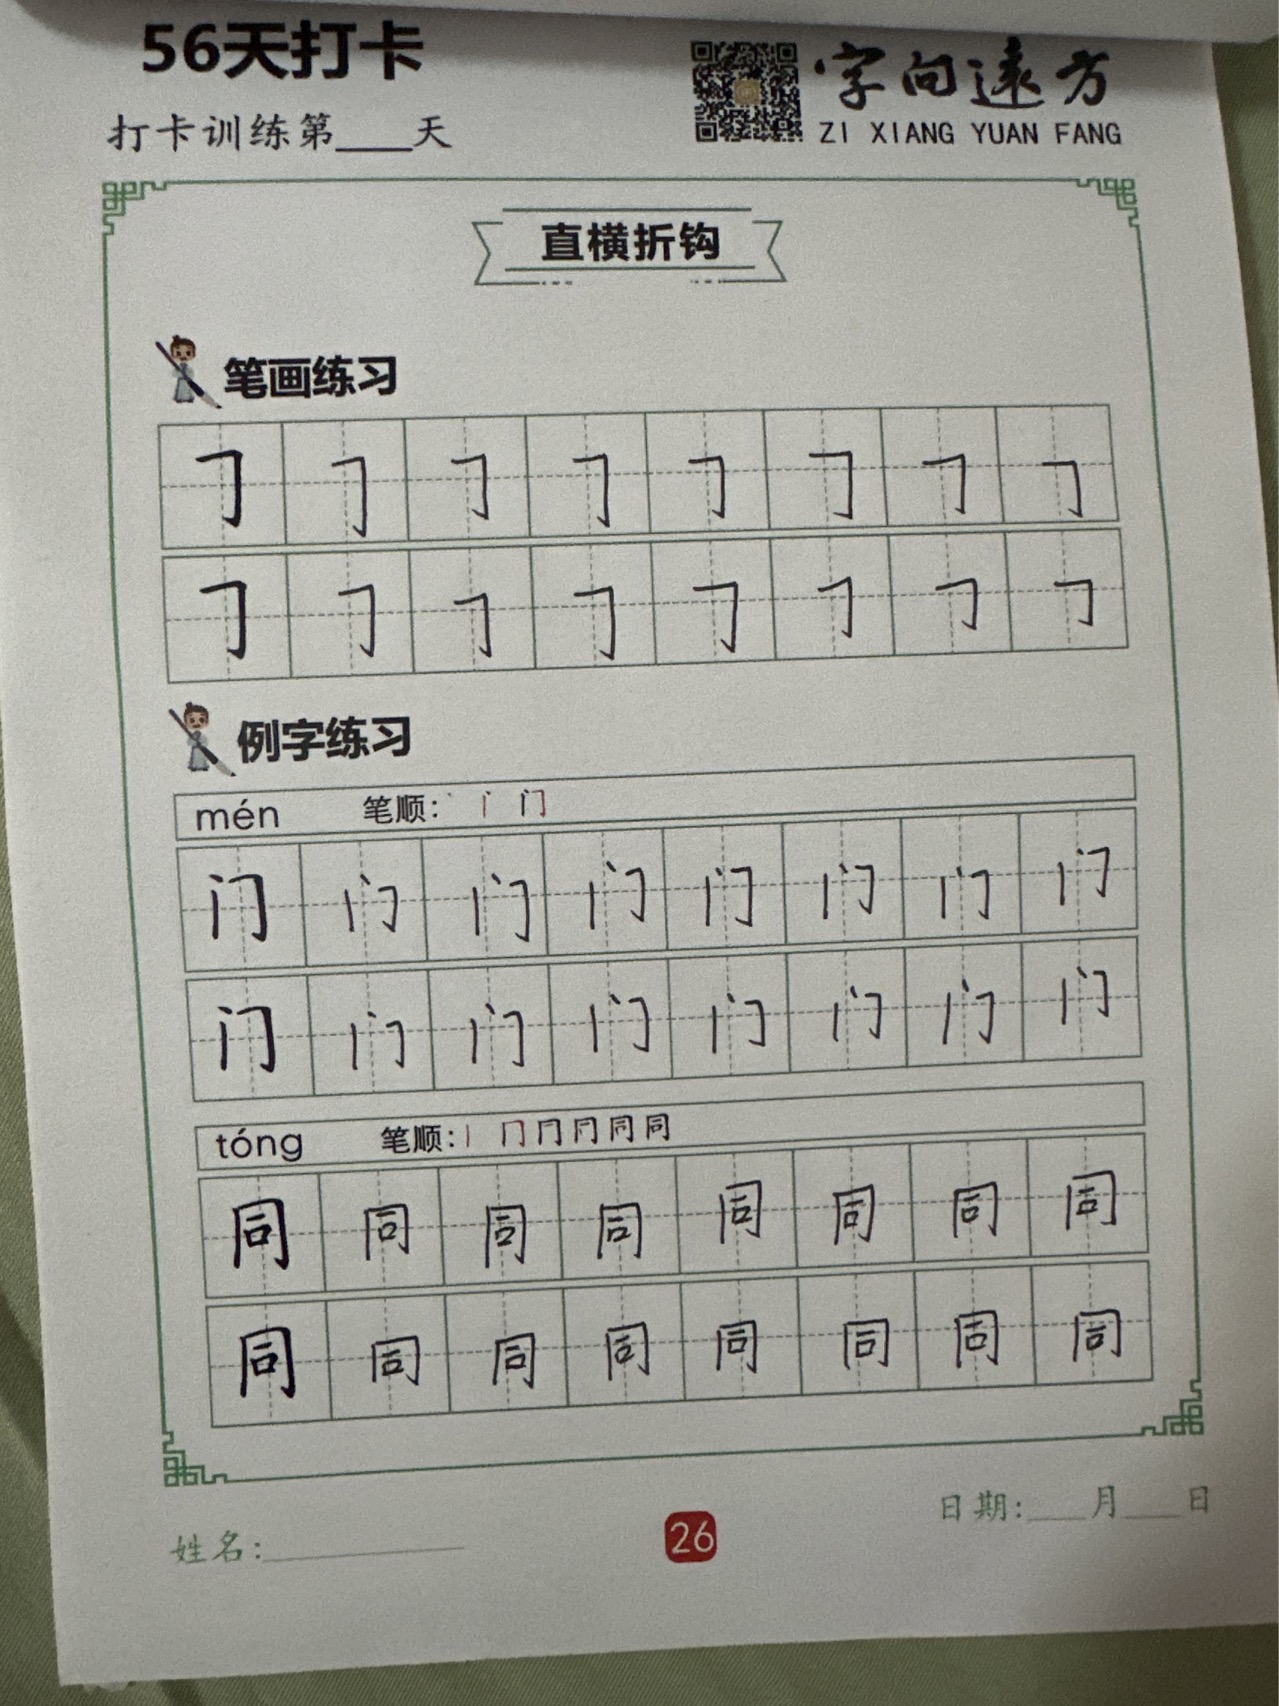 56天打卡
打卡训练第____天
字向远方
ZI XIANG YUAN FANG
直横折钩
笔画练习
𠃌 𠃌 𠃌 𠃌 𠃌 𠃌 𠃌 𠃌
𠃌 𠃌 𠃌 𠃌 𠃌 𠃌 𠃌 𠃌
例字练习
mén 笔顺: 丶 丨 门
门 门 门 门 门 门 门 门
门 门 门 门 门 门 门 门
tóng 笔顺: 丨 冂 冂 同 同
同 同 同 同 同 同 同 同
同 同 同 同 同 同 同 同
姓名:__________
26
日期:___月___日